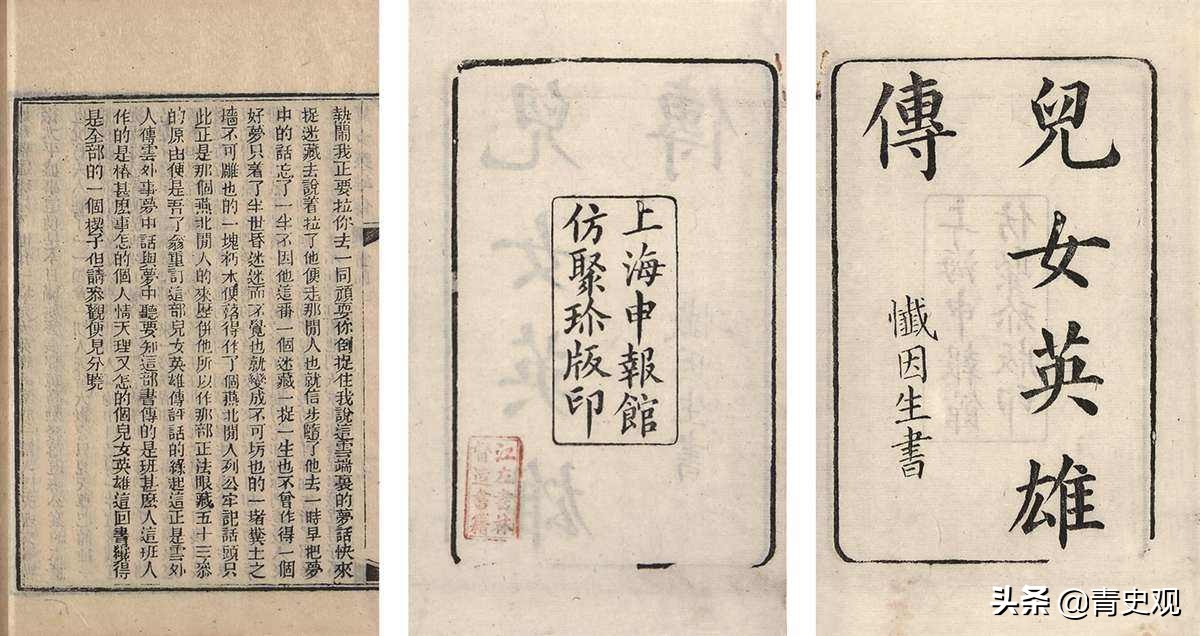 兒女英雄
傳
懺因生書
上海申報館
仿聚珍版印
江左書林
督造書籍
熱鬧我正要拉你去一同頑耍你倒捉住我說這雲端裏的夢話快來
捉迷藏去說着拉了他便走那閒人也就信步隨了他去一時早把夢
中的話忘了一半不因他這番一個迷藏一捉一生也不曾作得一個
好夢只着了半世昏迷迷而不覺也就變成不可圬也的一堵糞土之
墻不可雕也的一塊朽木便落得作了個燕北閒人列公牢記話頭只
此正是那個燕北閒人的來歷併他所以作那部正法眼藏五十三參
的原由便是吾了翁重訂這部兒女英雄傳評話的緣起這正是雲外
人傳雲外事夢中話與夢中聽要知這部書傳的是班甚麽人這班人
作的是樁甚麽事怎的個人情天理又怎的個兒女英雄這回書纔得
是全部的一個楔子但請叅觀便見分曉
头条 @青史观